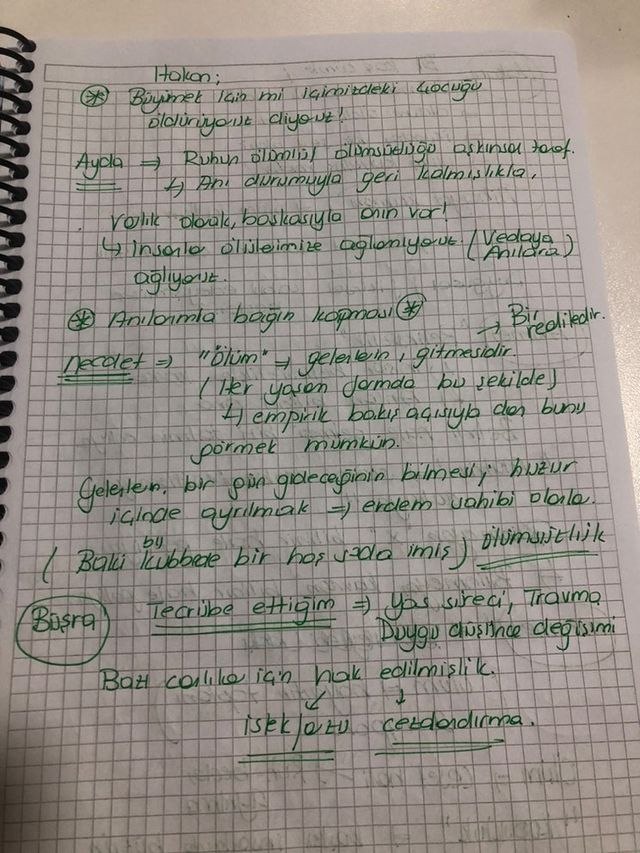 Hakan;
⊛ Büyümek için mi içimizdeki çocuğu
öldürüyoruz diyoruz!
Ayda ⇒ Ruhun ölümlü/ ölümsüzlüğü aşkınsal taraf.
↳ Anı durumuyla geri kalmışlıkla,
varlık olarak, başkasıyla anın var!
↳ İnsanla ölüşleimize ağlamıyoruz. (Vedaya
Anılara)
ağlıyoruz.
⊛ Anılarımla bağın kopması ⊛
→ Bir
rediledir.
Necdet ⇒ "ölüm" → gelenlerin, gitmesidir.
(Her yaşan formda bu şekilde)
↳ empirik bakış açısıyla dan bunu
görmek mümkün.
Gelenlerin, bir gün gideceğinin bilmesi; huzur
içinde ayrılmak ⇒ erdem sahibi olarla.
(Baki bu kubbede bir hoş sada imiş) ölümsüzlük
Büşra Tecrübe ettiğim ⇒ Yas süreci, Travma
Duygu düşünce değişimi
Bazı canlılar için hak edilmişlik.
istek/arzu cezalandırma.